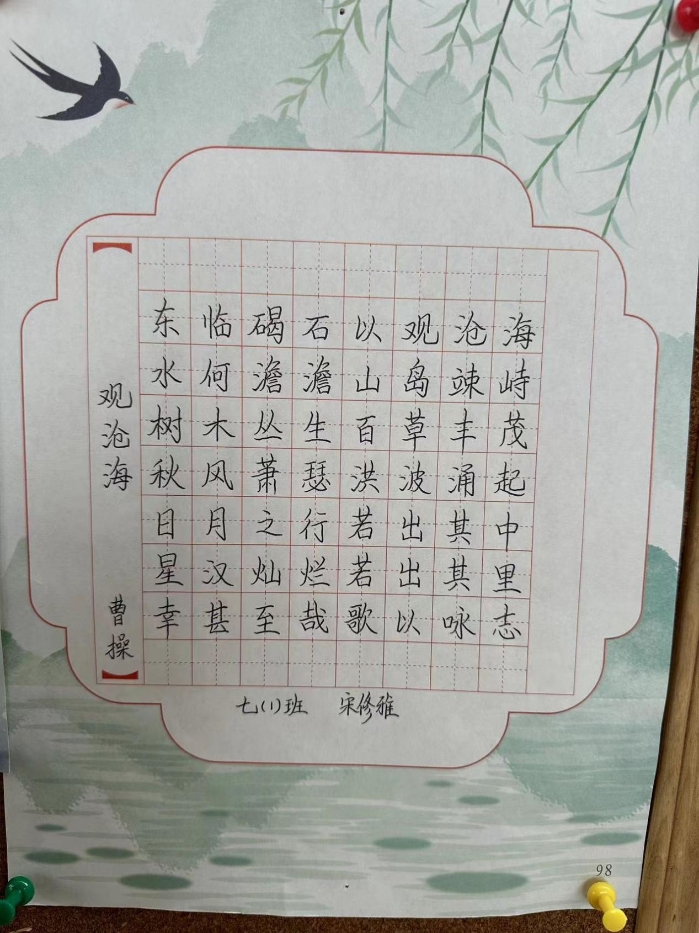 观沧海
曹操
东临碣石以观沧海
水何澹澹山岛竦峙
树木丛生百草丰茂
秋风萧瑟洪波涌起
日月之行若出其中
星汉灿烂若出其里
幸甚至哉歌以咏志
七(1)班 宋修雅
98